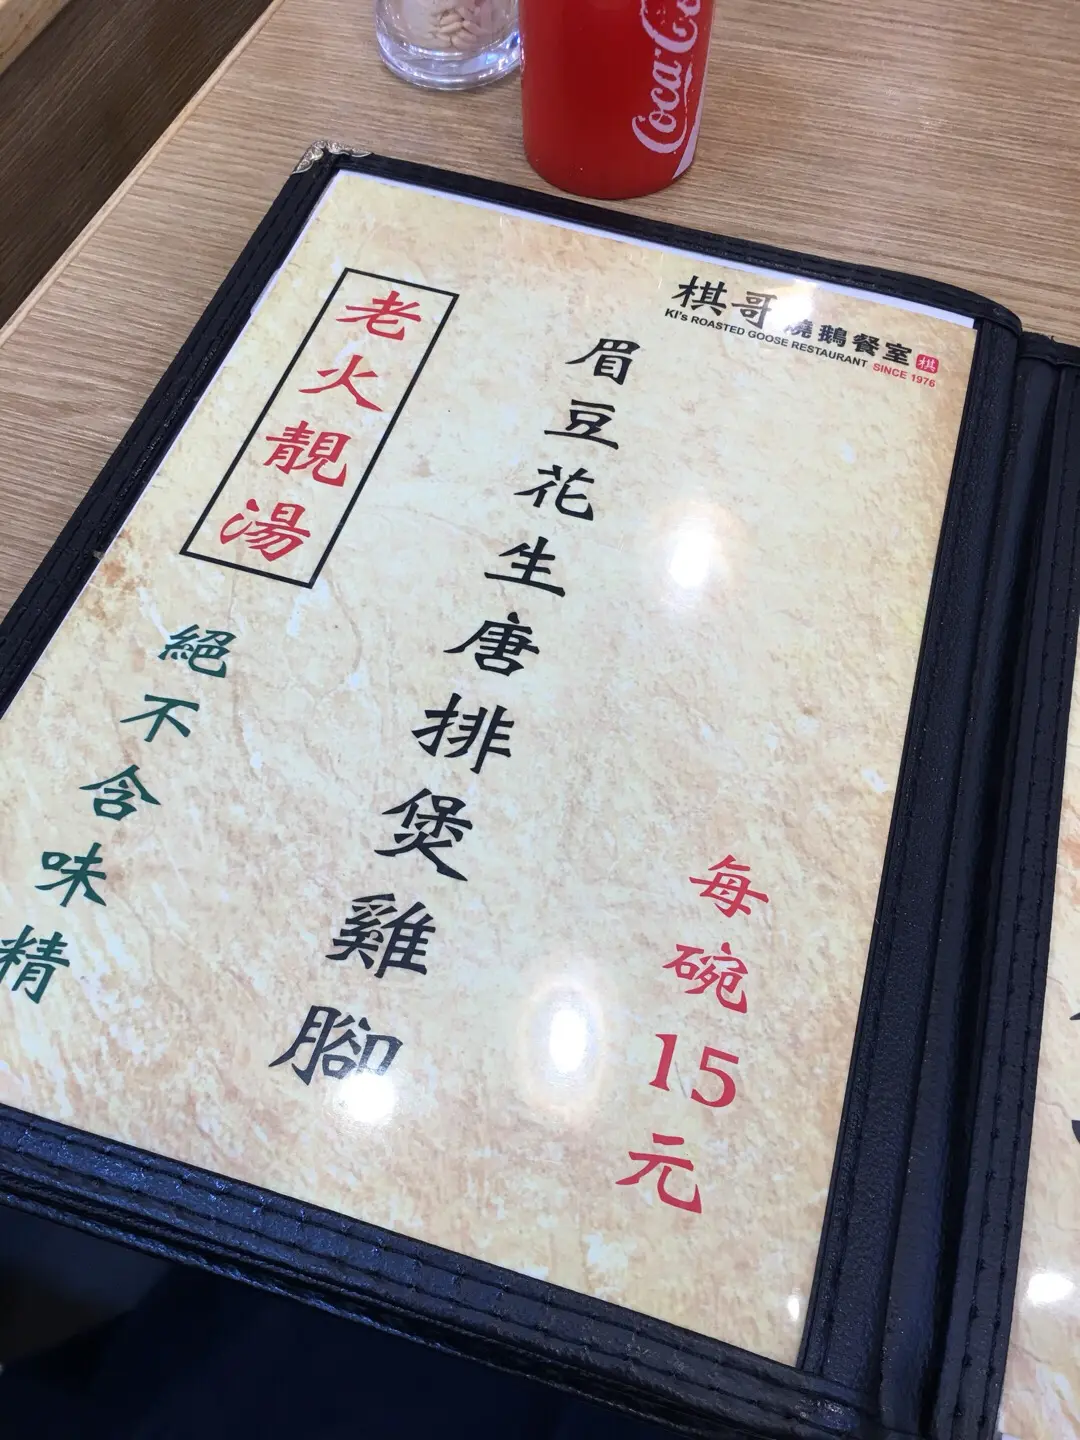 Coca-Co
棋哥燒鵝餐室 棋
KI's ROASTED GOOSE RESTAURANT SINCE 1976
老火靚湯
眉豆花生唐排煲雞腳
絕不含味精
每碗15元